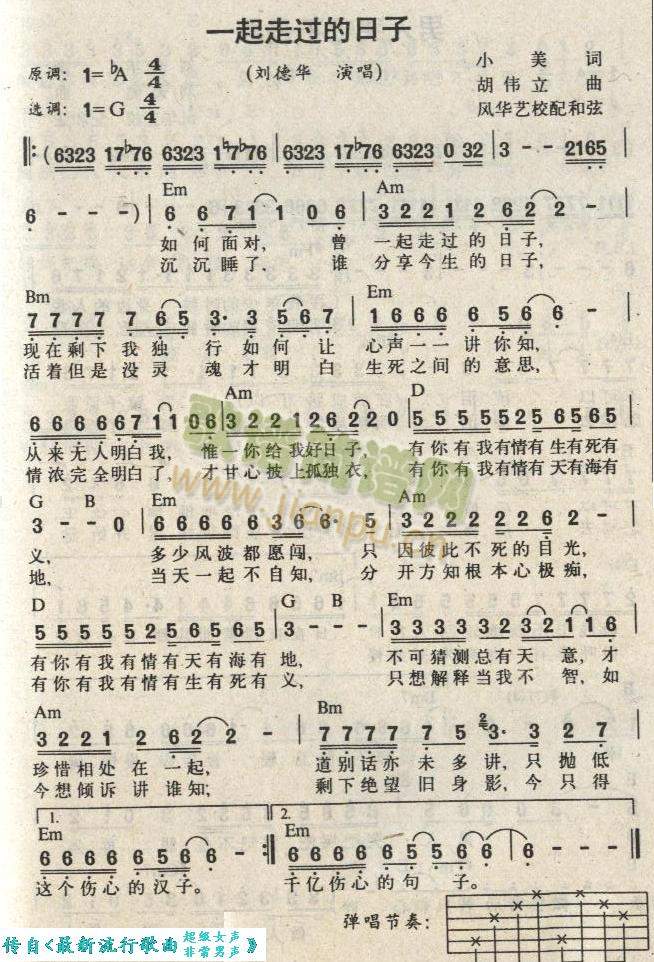 一起走过的日子
原调: 1=♭A 4/4
(刘德华 演唱)
小美 词
胡伟立 曲
选调: 1=G 4/4
风华艺校配和弦
(6323 17♭76 6323 1♭7♭76 | 6323 17♭76 6323 0 32 | 3 - - 2165 |
Em Am
6 - - -) | 6 6 7 1 1 0 6 | 3 2 2 1 2 6 2 2 - |
如何面对, 曾 一起走过的日子,
沉沉睡了, 谁 分享今生的日子,
Bm Em
7 7 7 7 7 6 5 3· 3 5 6 7 | 1 6 6 6 6 5 6 6 - |
现在剩下我独 行如何让 心声一一讲你知,
活着但是没灵 魂才明白 生死之间的意思,
Am D
6 6 6 6 6 7 1 1 0 6 | 3 2 2 1 2 6 2 2 0 | 5 5 5 5 5 5 2 5 6 5 6 5
从来无人明白我, 惟一你给我好日子, 有你有我有情有生有死有
情浓完全明白了, 才甘心披上孤独衣, 有你有我有情有天有海有
G B Em Am
3 - - 0 | 6 6 6 6 6 3 6 6· 5 | 3 2 2 2 2 2 6 2 - |
义, 多少风波都愿闯, 只 因彼此不死的目光,
地, 当天一起不自知, 分 开方知根本心极痴,
D G B Em
5 5 5 5 5 5 2 5 6 5 6 5 | 3 - - - | 3 3 3 3 3 2 3 2 1 1 6 |
有你有我有情有天有海有 地, 不可猜测总有天 意, 才
有你有我有情有生有死有 义, 只想解释当我不 智, 如
Am Bm
3 2 2 1 2 6 2 2 - | 7 7 7 7 7 5 3· 3 2 7 |
珍惜相处在一起, 道别话亦未多讲, 只抛低
今想倾诉讲谁知; 剩下绝望旧身影, 今只得
1. 2.
Em Em
6 6 6 6 6 5 6 6 - :| 6 6 6 6 6 5 5 6 6 | 6 - - - ‖
这个伤心的汉子。 千亿伤心的句 子。
弹唱节奏:
传自《最新流行歌曲 超级女声 非常男声》
www.jianpu.cn